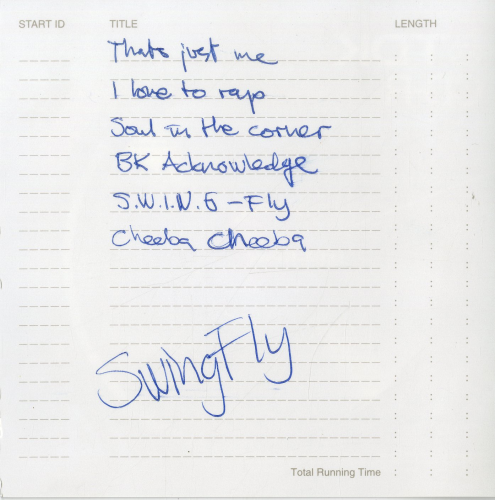 START ID TITLE LENGTH
Thats just me
I love to rap
Soul in the corner
BK Acknowledge
S.W.I.N.G - Fly
Cheeba Cheeba
SwingFly
Total Running Time